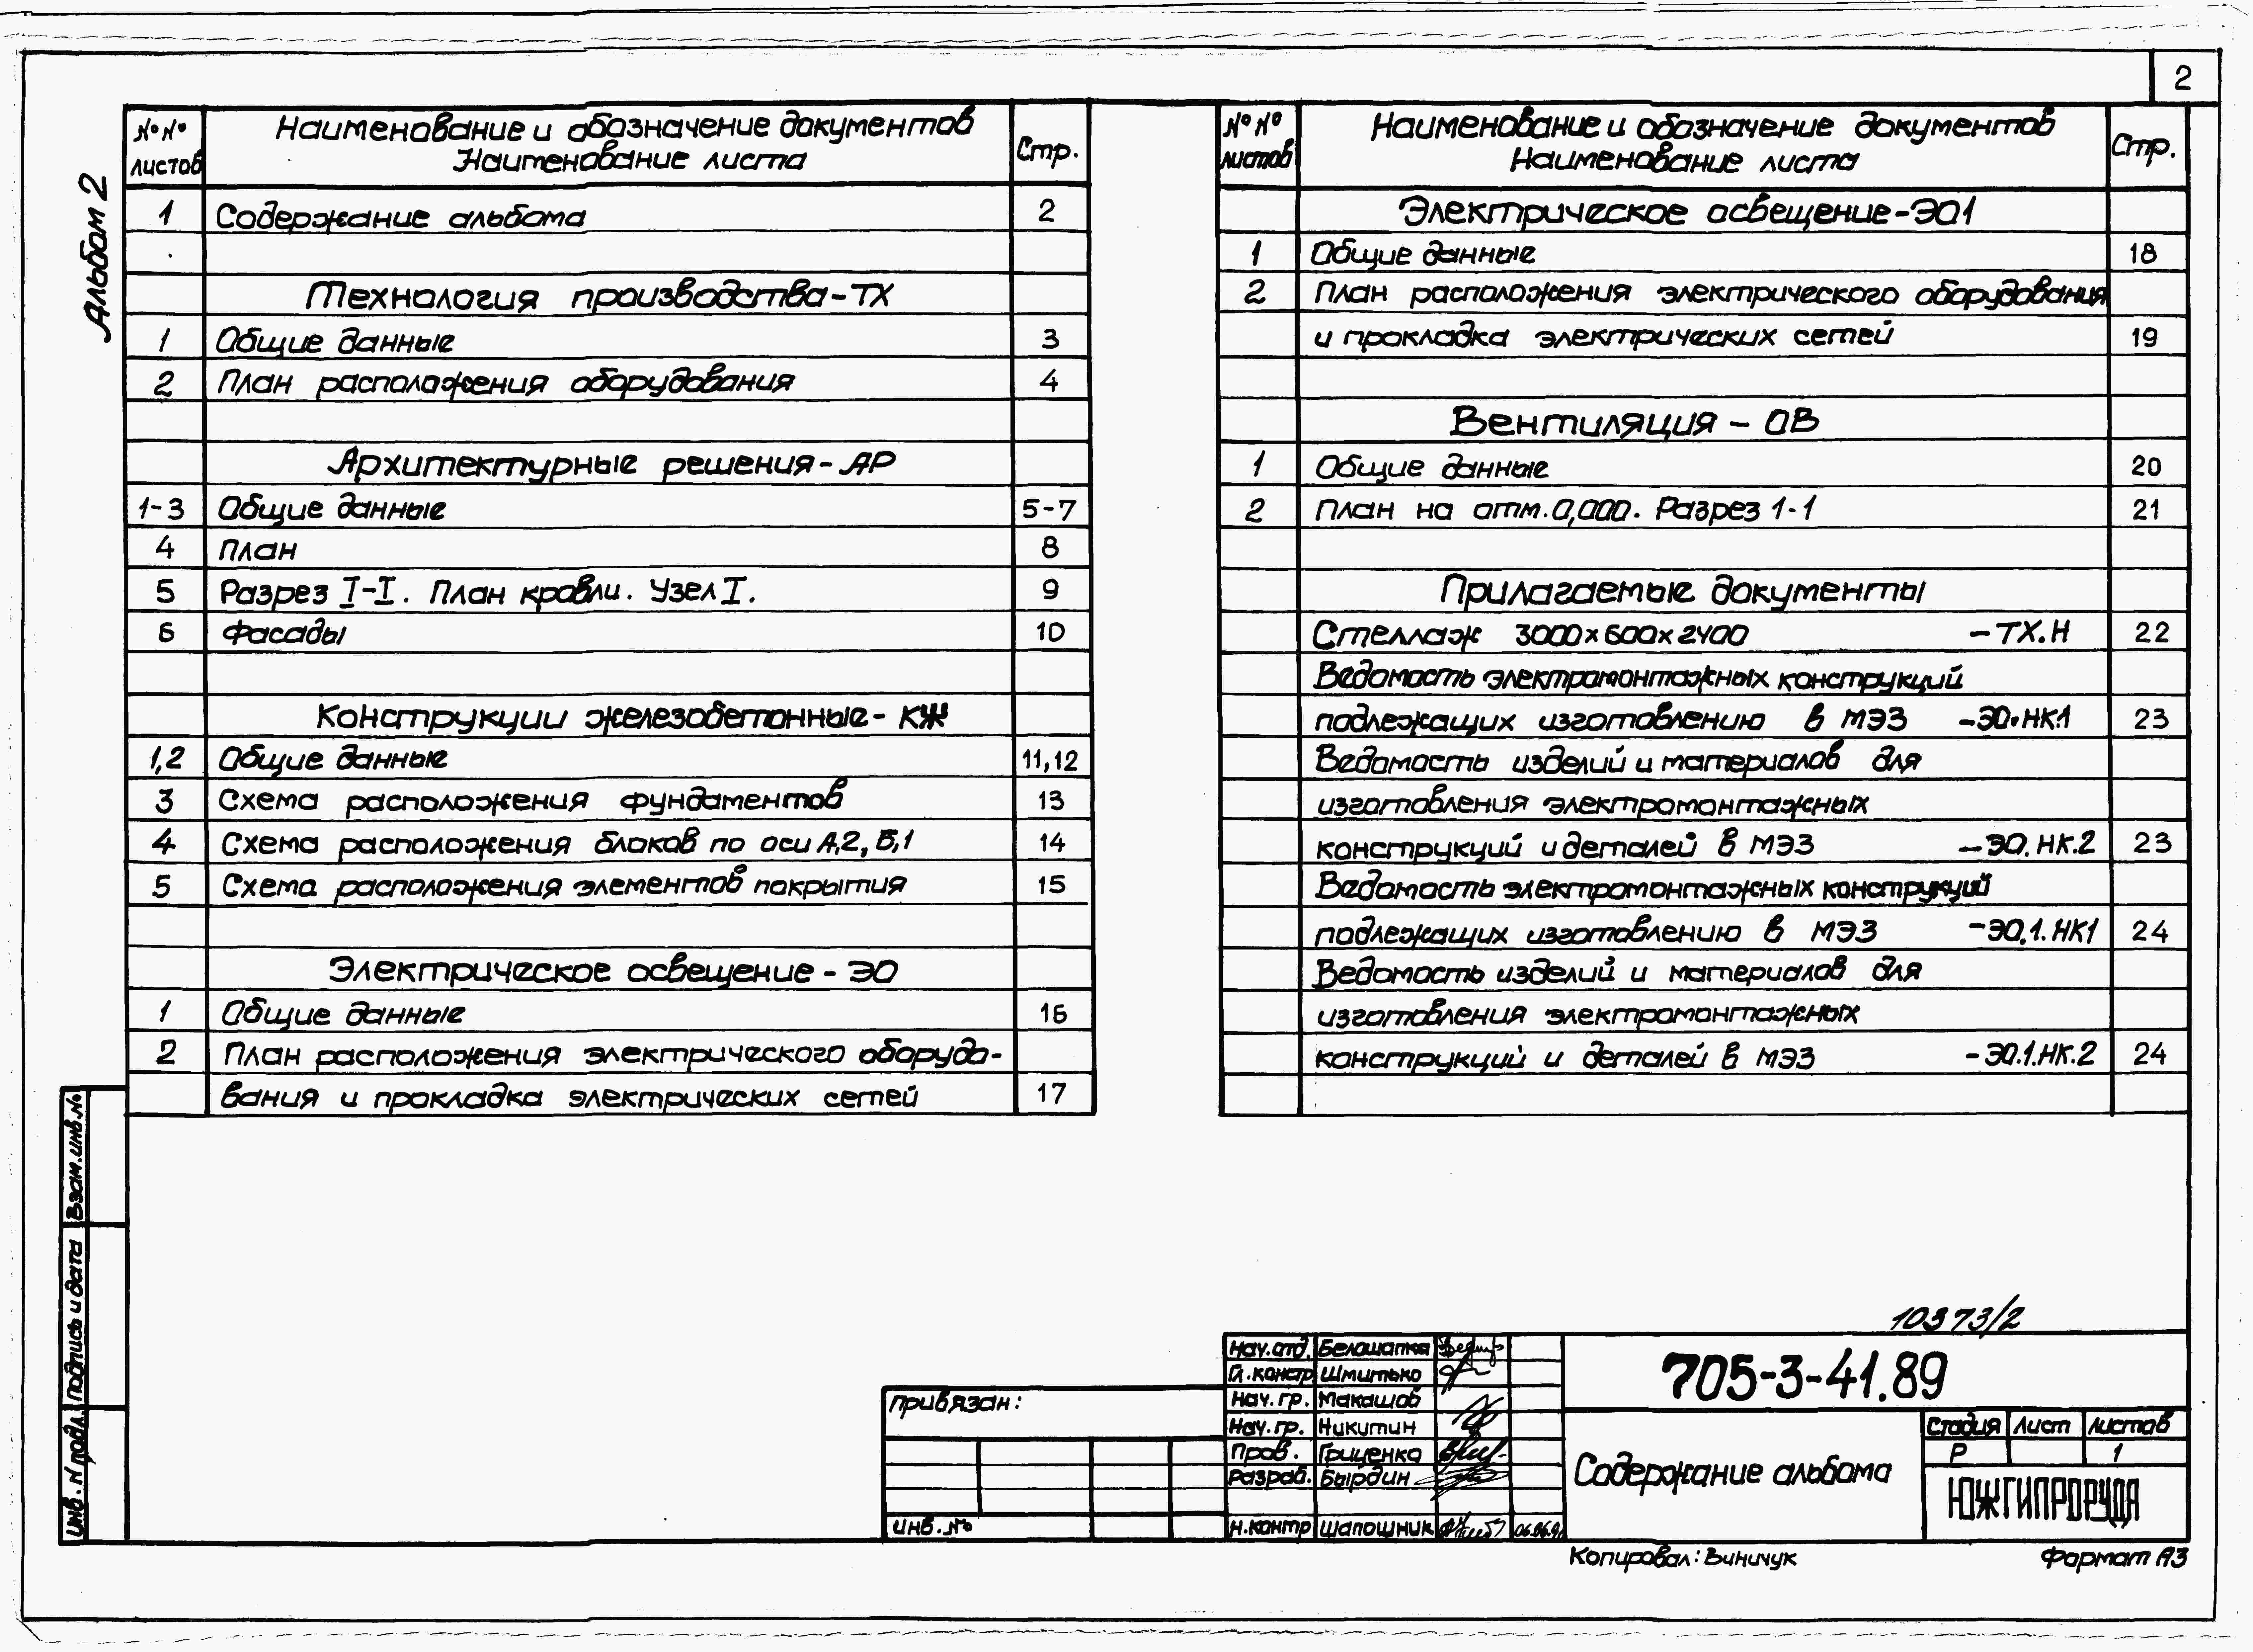 2
Альбом 2
№№ листов
Наименование и обозначение документов
Наименование листа
Стр.
1 Содержание альбома 2
Технология производства-ТХ
1 Общие данные 3
2 План расположения оборудования 4
Архитектурные решения-АР
1-3 Общие данные 5-7
4 План 8
5 Разрез I-I. План кровли. Узел I. 9
6 Фасады 10
Конструкции железобетонные-КЖ
1,2 Общие данные 11,12
3 Схема расположения фундаментов 13
4 Схема расположения блоков по оси А,2, Б,1 14
5 Схема расположения элементов покрытия 15
Электрическое освещение-ЭО
1 Общие данные 16
2 План расположения электрического оборудо-
вания и прокладка электрических сетей 17
№№ листов
Наименование и обозначение документов
Наименование листа
Стр.
Электрическое освещение-ЭО1
1 Общие данные 18
2 План расположения электрического оборудования
и прокладка электрических сетей 19
Вентиляция - ОВ
1 Общие данные 20
2 План на отм. 0,000. Разрез 1-1 21
Прилагаемые документы
Стеллаж 3000х600х2400 -ТХ.Н 22
Ведомость электромонтажных конструкций
подлежащих изготовлению в МЭЗ -ЭО.НК.1 23
Ведомость изделий и материалов для
изготовления электромонтажных
конструкций и деталей в МЭЗ -ЭО.НК.2 23
Ведомость электромонтажных конструкций
подлежащих изготовлению в МЭЗ -ЭО.1.НК1 24
Ведомость изделий и материалов для
изготовления электромонтажных
конструкций и деталей в МЭЗ -ЭО.1.НК.2 24
Взам.инв.№
Подпись и дата
Инв. N подл.
10373/2
Привязан:
Инв. №
Нач.отд. Белошапка
Гл.констр. Шмитько
Нач.гр. Макашов
Нач.гр. Никитин
Пров. Гриценко
Разраб. Бырдин
Н.контр Шапошник
705-3-41.89
Содержание альбома
Стадия Лист Листов
Р 1
ЮЖГИПРОРУДА
Копировал: Виничук
Формат А3